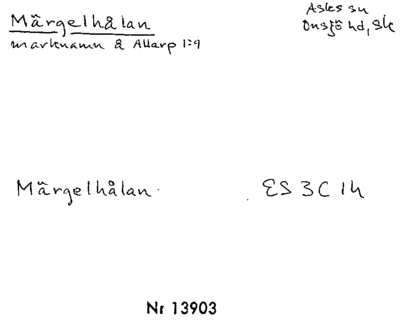 Märgelhålan
Asks sn
Onsjö hd, Sk
marknamn å Allarp 1:9
Märgelhålan
ES 3C 1h
Nr 13903